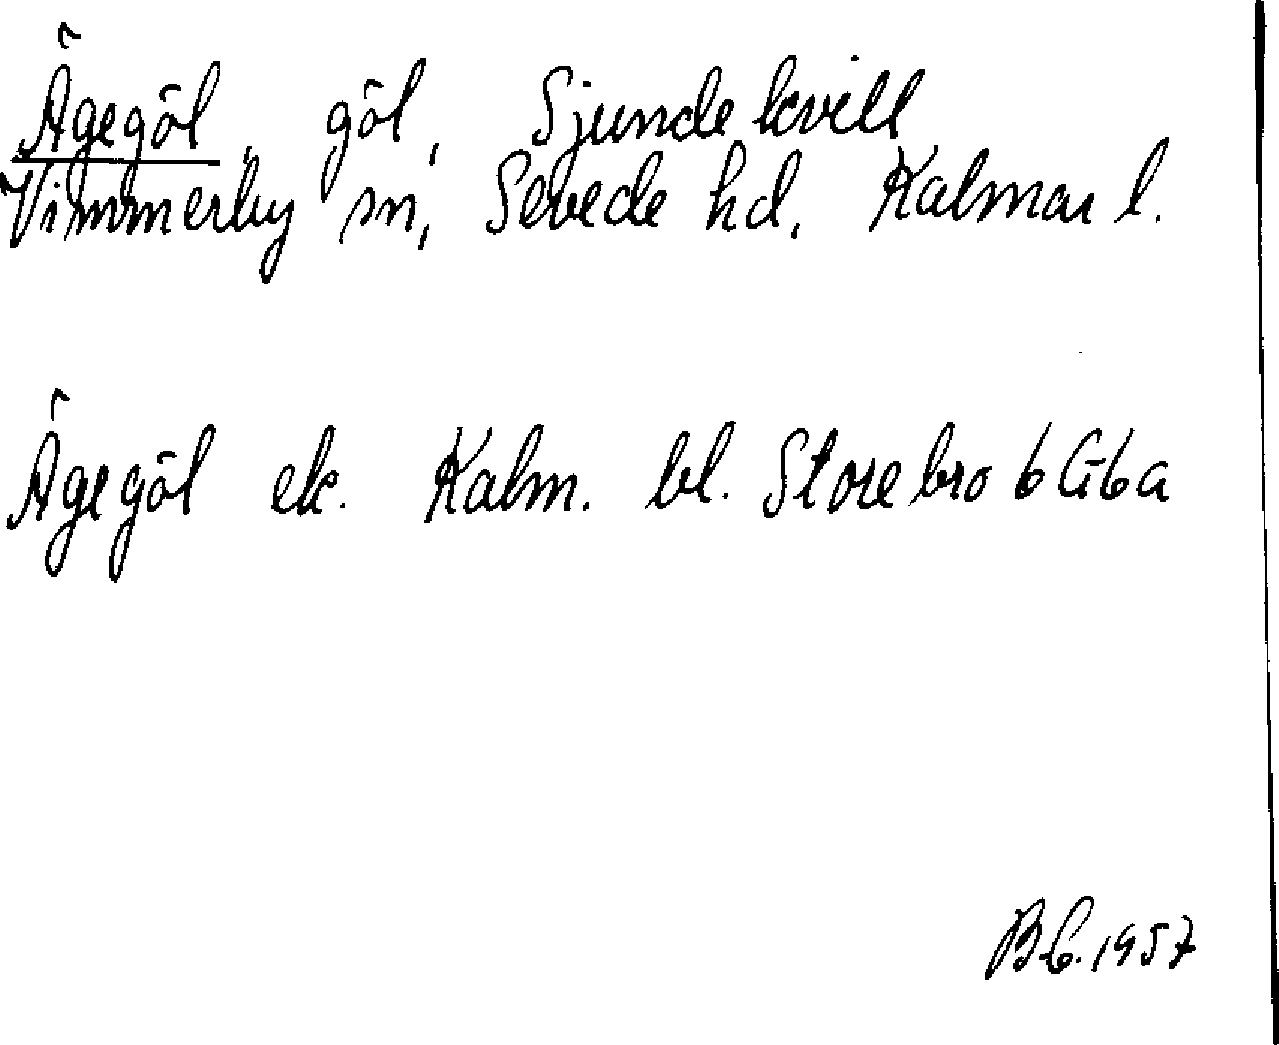 Ägegöl, göl, Sjundekvill
Vimmerby sn, Sevede hd, Kalmar l.
Ägegöl ek. Kalm. bl. Storebro 6G6a
1957